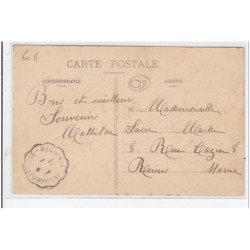 606
CARTE POSTALE
CORRESPONDANCE
ADRESSE
Bons et meilleurs
Souvenirs
Mathilde
M
Mademoiselle
Lucie Martin
8 Rue Cazin 8
Reims Marne